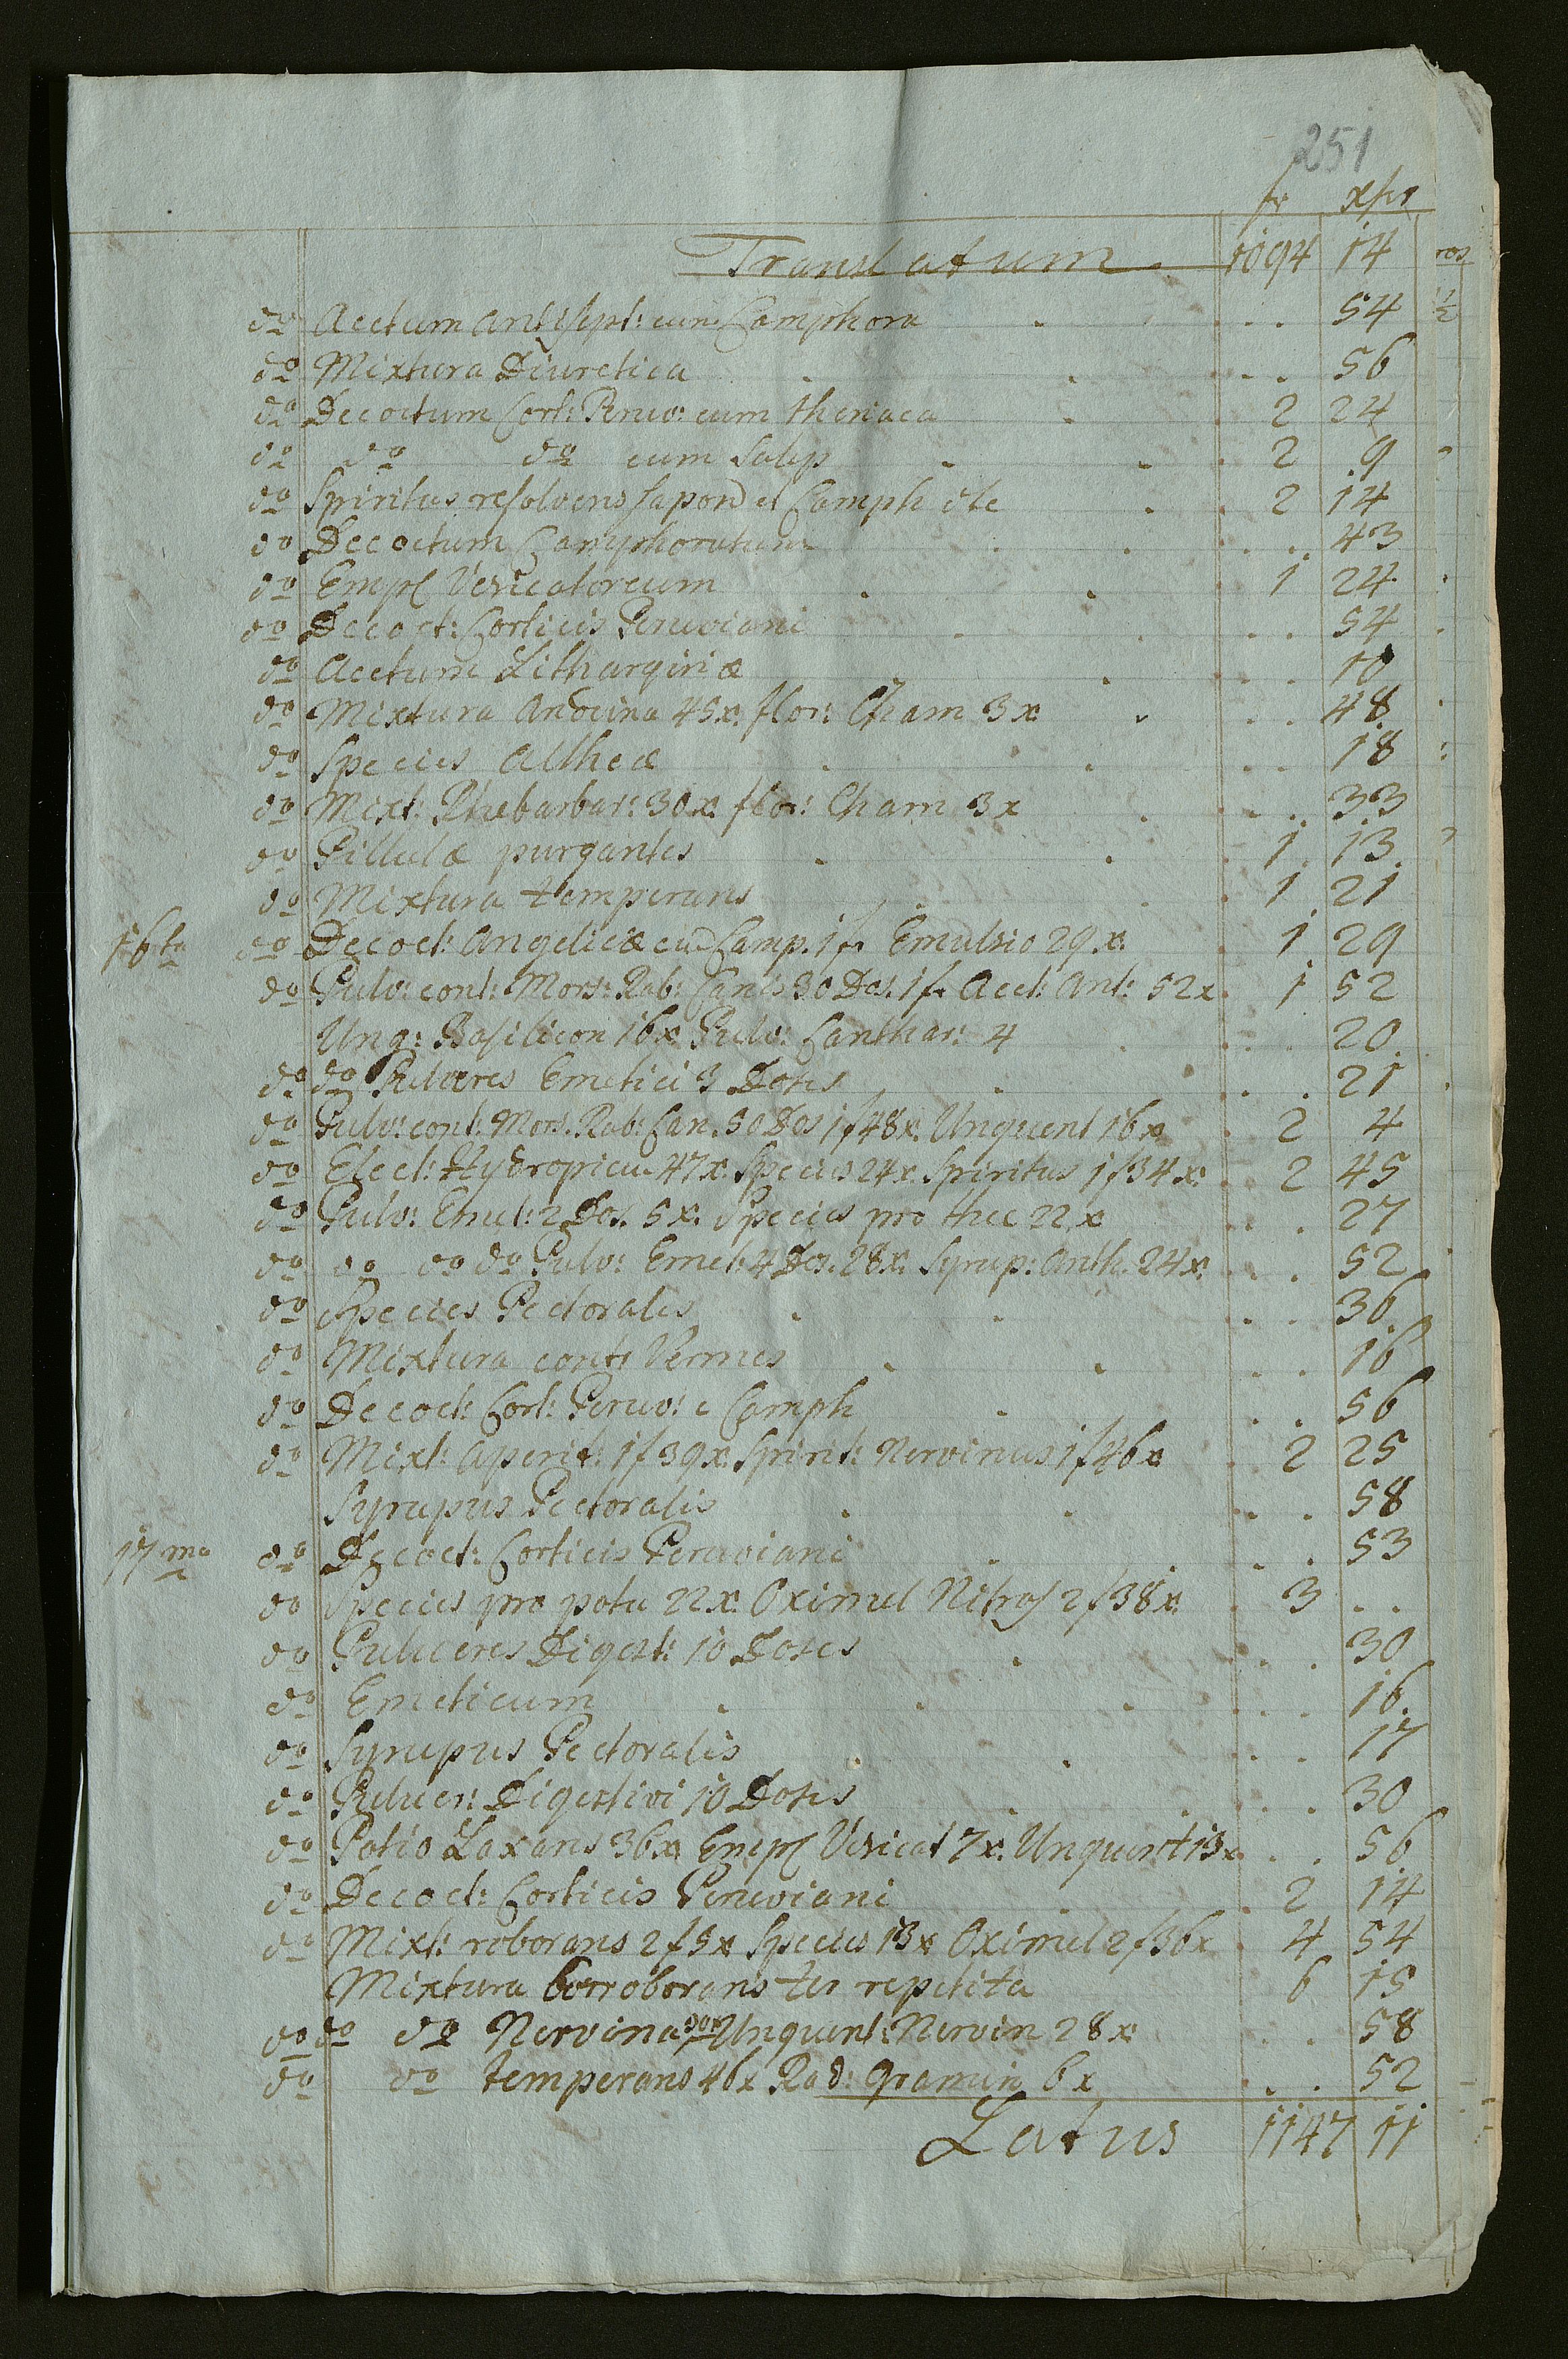 251
fr xfrr
Translatum. 1094 14
do Acetum antisept: cum Camphora . . . 54
do Mixtura Diuretica . . . 56
do Decoctum Cort: Peruv: cum theriaca 2 24
do do do cum Salep 2 9
do Spiritus resolvens sapon et Camph etc 2 14
do Decoctum Camphoratum . . . 43
do Empl Vesicatoreum 1 24
do Decoct: Corticis Peruviani . . . 54
do Acetum Lithargiriæ . . . 10
do Mixtura Anodina 45x. flor: Cham 3x . . . 48
do Species Altheæ . . . 18
do Mixt: Rhebarbar: 30x. flor: Cham 3x . . . 33
do Pillulæ purgantes 1 13
do Mixtura temperans 1 21
16ta do Decoct: Angelicæ cu Camp. 1fr Emulsio 29.x. 1 29
do Pulv: cont: Mors: Rab: Canis 30 Dos. 1fr Acet: Ant: 52x. 1 52
Ung: Basilicon 16x Pulv: Canthar: 4 . . . 20
do do Pulveres Emetici 3 Doses . . . 21
do Pulv: cont: Mors. Rab: Can. 30 Dos 1f48x. Unguent 16x 2 4
do Elect: Hydropicu 47x. Species 24x. Spiritus 1f34x: 2 45
do Pulv: Emet: 2 Dos. 5x. Species pro thee 22x . . . 27
do do do do Pulv: Emet: 4 Dos. 28x. Syrup: Anth. 24x. . . . 52
do Species Pectorales . . . 36
do Mixtura contr Vermes . . . 16
do Decoct: Cort: Peruv: c Camph . . . 56
do Mixt: Aperit: 1f39x. Spirit: Nervinus 1f46x 2 25
Syrupus Pectoralis . . . 58
17ma do Decoct: Corticis Peruviani . . . 53
do Species pro potu 22x. Oximel Nitros 2f38x. 3 . .
do Pulveres Digest: 10 Doses . . . 30
do Emeticum . . . 16.
do Syrupus Pectoralis . . . 17
do Pulver: Digestivi 10 Doses . . . 30
do Potio Laxans 36x Empl Vesicat 7x. Unguent 13x . . . 56
do Decoct: Corticis Peruviani 2 14
do Mixt: roborans 2f5x Species 13x Oximel 2f36x 4 54
Mixtura Corroborans ter repetita 6 15
do do do Nervina 30x Unguent: Nervin 28x . . . 58
do do temperans 46x Rad: Gramin 6x . . . 52
Latus 1147 11